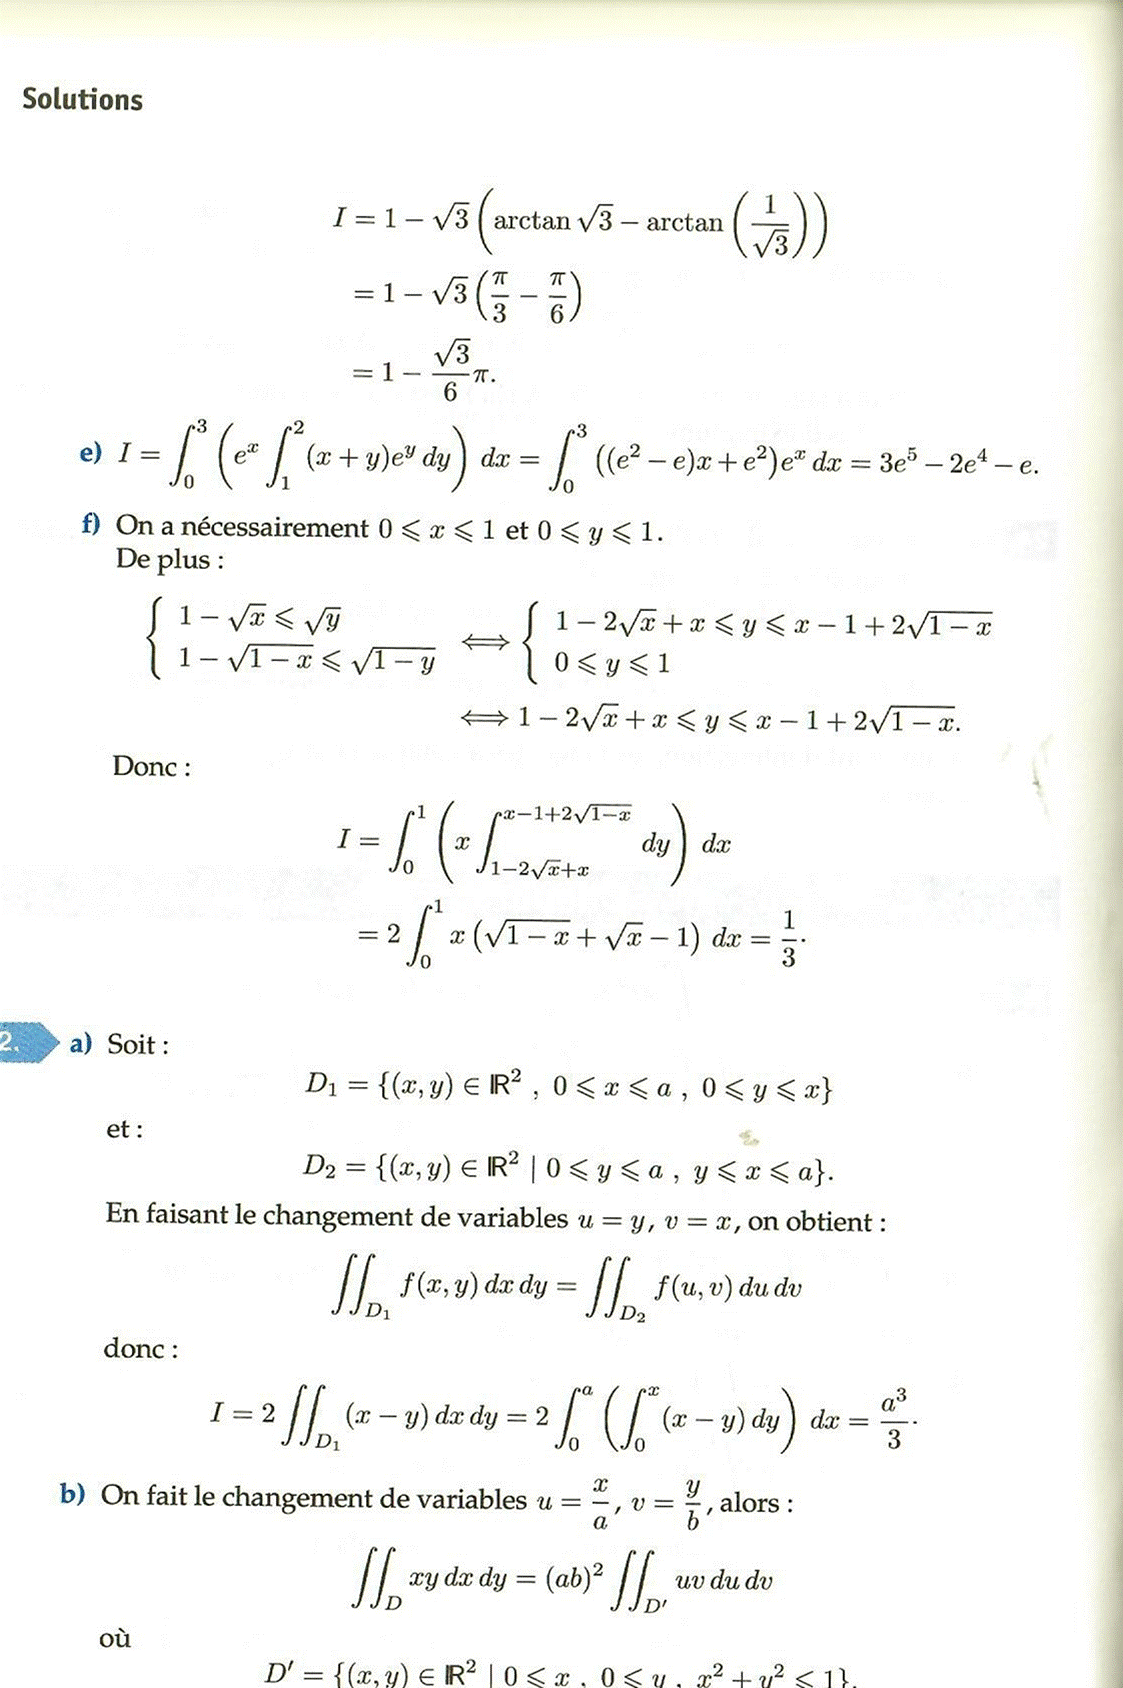 Solutions
I = 1 − √3 (arctan √3 − arctan (1/√3))
= 1 − √3 (π/3 − π/6)
= 1 − √3/6 π.
e) I = ∫₀³ (eˣ ∫₁² (x + y)eʸ dy) dx = ∫₀³ ((e² − e)x + e²)eˣ dx = 3e⁵ − 2e⁴ − e.
f) On a nécessairement 0 ⩽ x ⩽ 1 et 0 ⩽ y ⩽ 1.
De plus :
{ 1 − √x ⩽ √y ⟺ { 1 − 2√x + x ⩽ y ⩽ x − 1 + 2√(1 − x)
1 − √(1 − x) ⩽ √(1 − y) 0 ⩽ y ⩽ 1
⟺ 1 − 2√x + x ⩽ y ⩽ x − 1 + 2√(1 − x).
Donc :
I = ∫₀¹ (x ∫_{1−2√x+x}^{x−1+2√(1−x)} dy) dx
= 2 ∫₀¹ x (√(1 − x) + √x − 1) dx = 1/3.
2. a) Soit :
D₁ = {(x, y) ∈ ℝ² , 0 ⩽ x ⩽ a , 0 ⩽ y ⩽ x}
et :
D₂ = {(x, y) ∈ ℝ² | 0 ⩽ y ⩽ a , y ⩽ x ⩽ a}.
En faisant le changement de variables u = y, v = x, on obtient :
∬_{D₁} f(x, y) dx dy = ∬_{D₂} f(u, v) du dv
donc :
I = 2 ∬_{D₁} (x − y) dx dy = 2 ∫₀ᵃ (∫₀ˣ (x − y) dy) dx = a³/3.
b) On fait le changement de variables u = x/a, v = y/b, alors :
∬_D xy dx dy = (ab)² ∬_{D′} uv du dv
où
D′ = {(x, y) ∈ ℝ² | 0 ⩽ x , 0 ⩽ y , x² + y² ⩽ 1}.